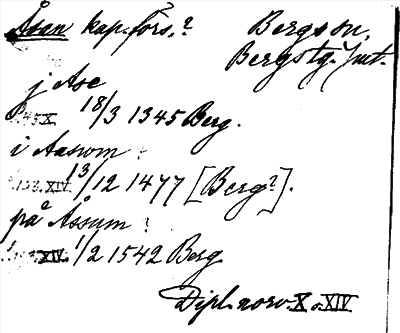 Åsen kap. förs.? Bergs sn,
Bergstg. Jmt.
j Ase
X. 18/3 1345 Berg.
i Aasom :
XIV. 13/12 1477 [Berg?].
på Åssum :
XIV. 1/2 1542 Berg
Dipl. norv. X o. XIV